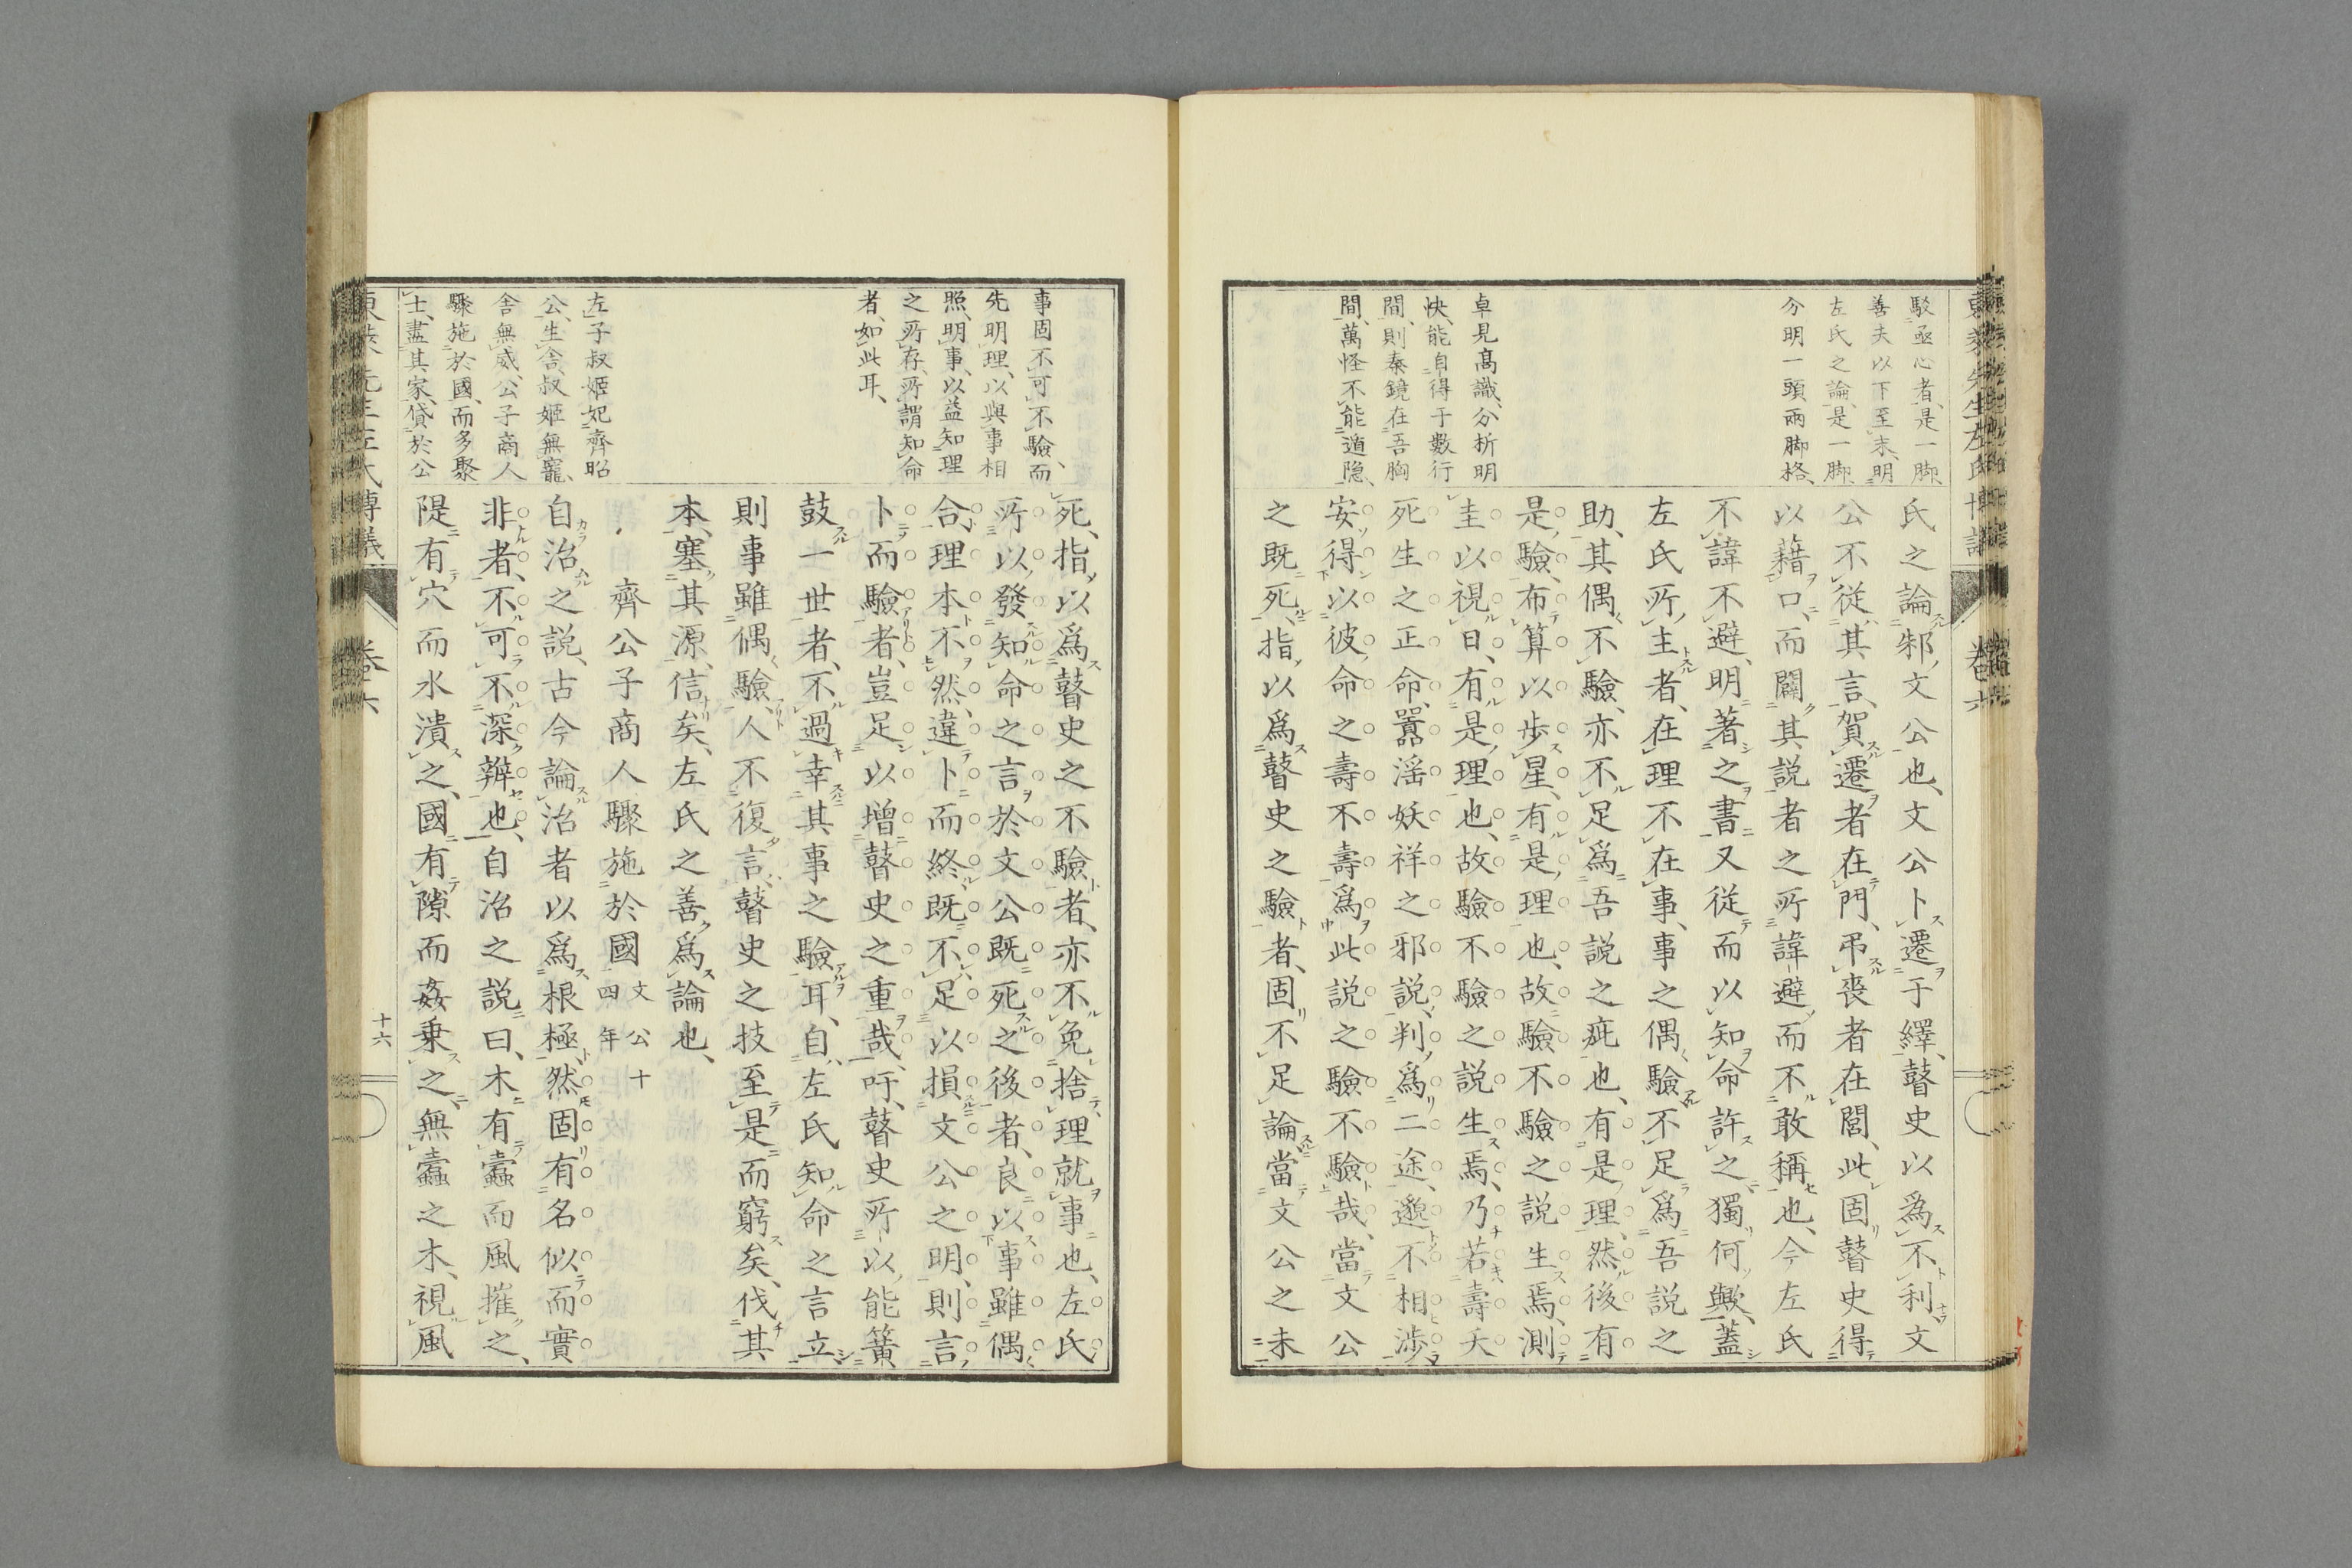 駁丞心者、是一脚、
善夫以下至末、明
左氏之論、是一脚、
分明一頭兩脚格、
卓見髙識、分析明
快、能自得于數行
間、則秦鏡在吾胸
間、萬怪不能遁隱、
氏之論邾文公也、文公卜遷于繹、瞽史以爲不利、文
公不從其言、賀遷者在門、弔喪者在閭、此固瞽史得
以藉口、而闢其説者之所諱避而不敢稱也、今左氏
不諱不避、明著之書、又從而以知命許之、獨何歟、蓋
左氏所主者、在理不在事、事之偶驗、不足爲吾説之
助、其偶不驗、亦不足爲吾説之疵也、有是理、然後有
是驗、布算以歩星、有是理也、故驗不驗之説生焉、測
圭以視日、有是理也、故驗不驗之説生焉、乃若壽夭
死生之正命、嚚滛妖祥之邪説、判爲二途、邈不相渉、
安得以彼命之壽不壽、爲此説之驗不驗哉、當文公
之既死、指以爲瞽史之驗者、固不足論、當文公之未
卷六
事固不可不驗、而
先明理、以與事相
照、明事、以益知理
之所存、所謂知命
者、如此耳、
左子叔姬妃齊昭
公、生舍、叔姬無寵、
舍無威、公子商人
驟施於國、而多聚
士、盡其家、貸於公
死、指以爲瞽史之不驗者、亦不免捨理就事也、左氏
所以發知命之言於文公既死之後者、良以事雖偶
合、理本不然、違卜而終、既不足以損文公之明、則言
卜而驗者、豈足以增瞽史之重哉、吁、瞽史所以能簧
鼓一世者、不過幸其事之驗耳、自左氏知命之言立、
則事雖偶驗、人不復言、瞽史之技至是而窮矣、伐其
本、塞其源、信矣、左氏之善爲論也、
齊公子商人驟施於國 文公十四年
自治之説、古今論治者以爲根極、然固有名似而實
非者、不可不深辯也、自治之説曰、木有蠹而風摧之、
隄有穴而水潰之、國有隙而姦乗之、無蠹之木、視風
東萊先生左氏博議
卷六
十六